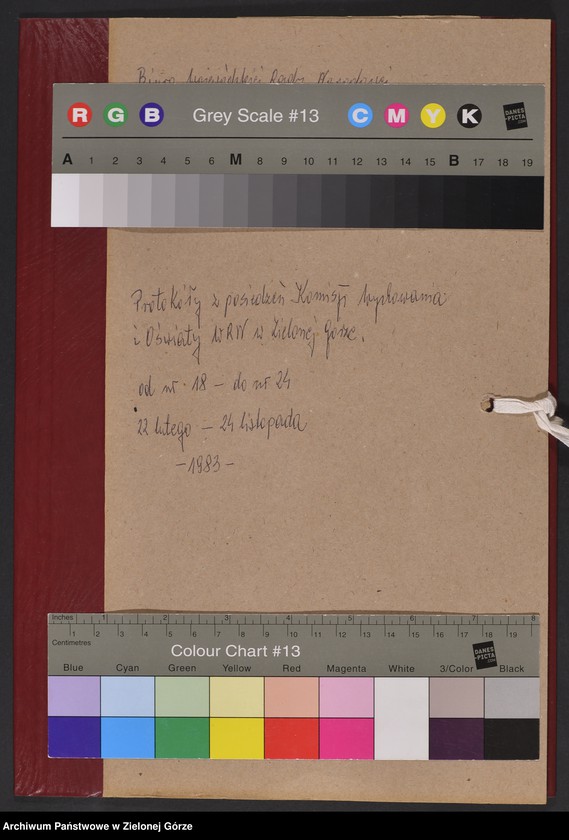 Biuro Wojewódzkiej Rady Narodowej
R G B Grey Scale #13 C M Y K DANES-PICTA.COM
A 1 2 3 4 5 6 M 8 9 10 11 12 13 14 15 B 17 18 19
Protokóły z posiedzeń Komisji Wychowania
i Oświaty WRN w Zielonej Górze.
od nr 18 – do nr 24
22 lutego – 24 listopada
–1983–
Inches 1 2 3 4 5 6 7 8
1 2 3 4 5 6 7 8 9 10 11 12 13 14 15 16 17 18 19
Centimetres
Colour Chart #13 DANES-PICTA.COM
Blue Cyan Green Yellow Red Magenta White 3/Color Black
Archiwum Państwowe w Zielonej Górze